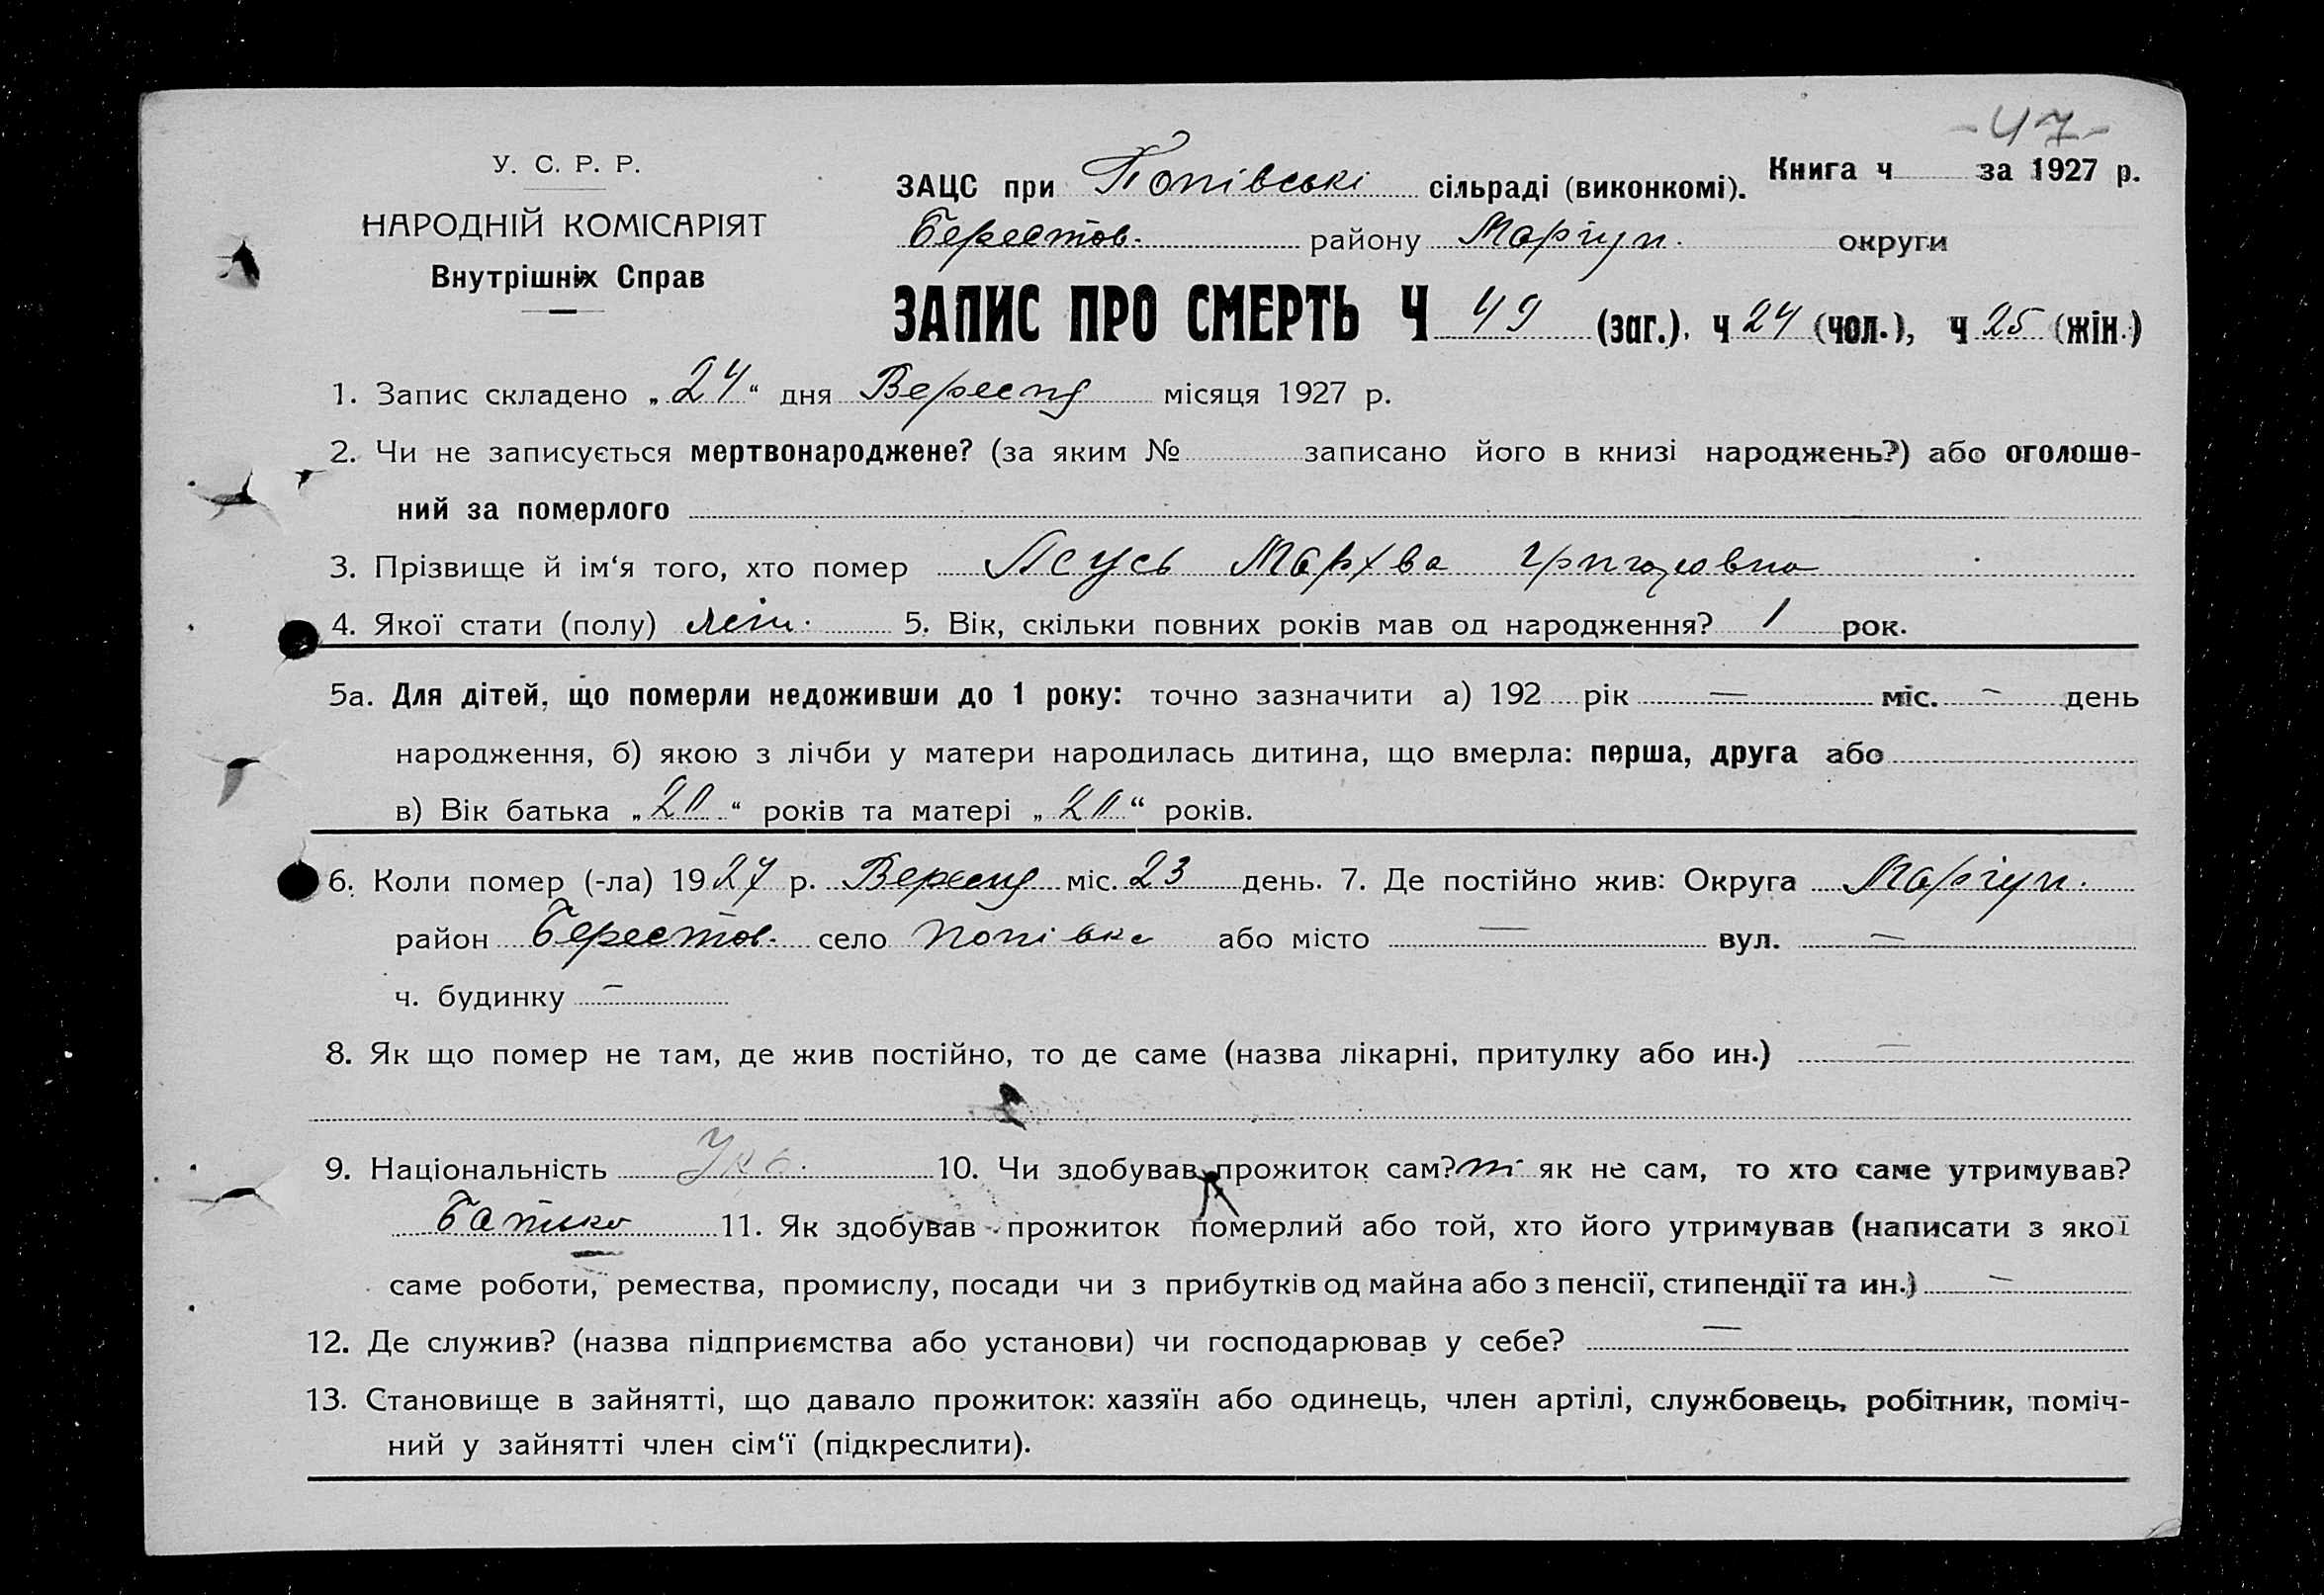 -47-
У. С. Р. Р.
НАРОДНІЙ КОМІСАРІЯТ
Внутрішніх Справ
ЗАЦС при Попівські сільраді (виконкомі). Книга ч за 1927 р.
Берестов. району Маріуп. округи
ЗАПИС ПРО СМЕРТЬ Ч 49 (заг.). ч 24 (чол.), ч 25 (жін.)
1. Запис складено „24“ дня Вересня місяця 1927 р.
2. Чи не записується мертвонароджене? (за яким № записано його в книзі народжень?) або оголоше-
ний за померлого
3. Прізвище й ім‘я того, хто помер Псусь Мархва Григоровна
4. Якої стати (полу) 5. Вік, скільки повних років мав од народження? 1 рок.
5а. Для дітей, що померли недоживши до 1 року: точно зазначити а) 192 рік — міс. – день
народження, б) якою з лічби у матери народилась дитина, що вмерла: перша, друга або
в) Вік батька „20“ років та матері „20“ років.
6. Коли помер (-ла) 1927 р. Вересня міс. 23 день. 7. Де постійно жив: Округа Маріуп.
район Берестов. село Попівка або місто — вул. —
ч. будинку –
8. Як що помер не там, де жив постійно, то де саме (назва лікарні, притулку або ин.) —
9. Національність Укр. 10. Чи здобував прожиток сам? ні як не сам, то хто саме утримував?
Батько 11. Як здобував прожиток померлий або той, хто його утримував (написати з якої
саме роботи, ремества, промислу, посади чи з прибутків од майна або з пенсії, стипендії та ин.) –
12. Де служив? (назва підприємства або установи) чи господарював у себе? —
13. Становище в зайнятті, що давало прожиток: хазяїн або одинець, член артілі, службовець, робітник, поміч-
ний у зайнятті член сім‘ї (підкреслити).